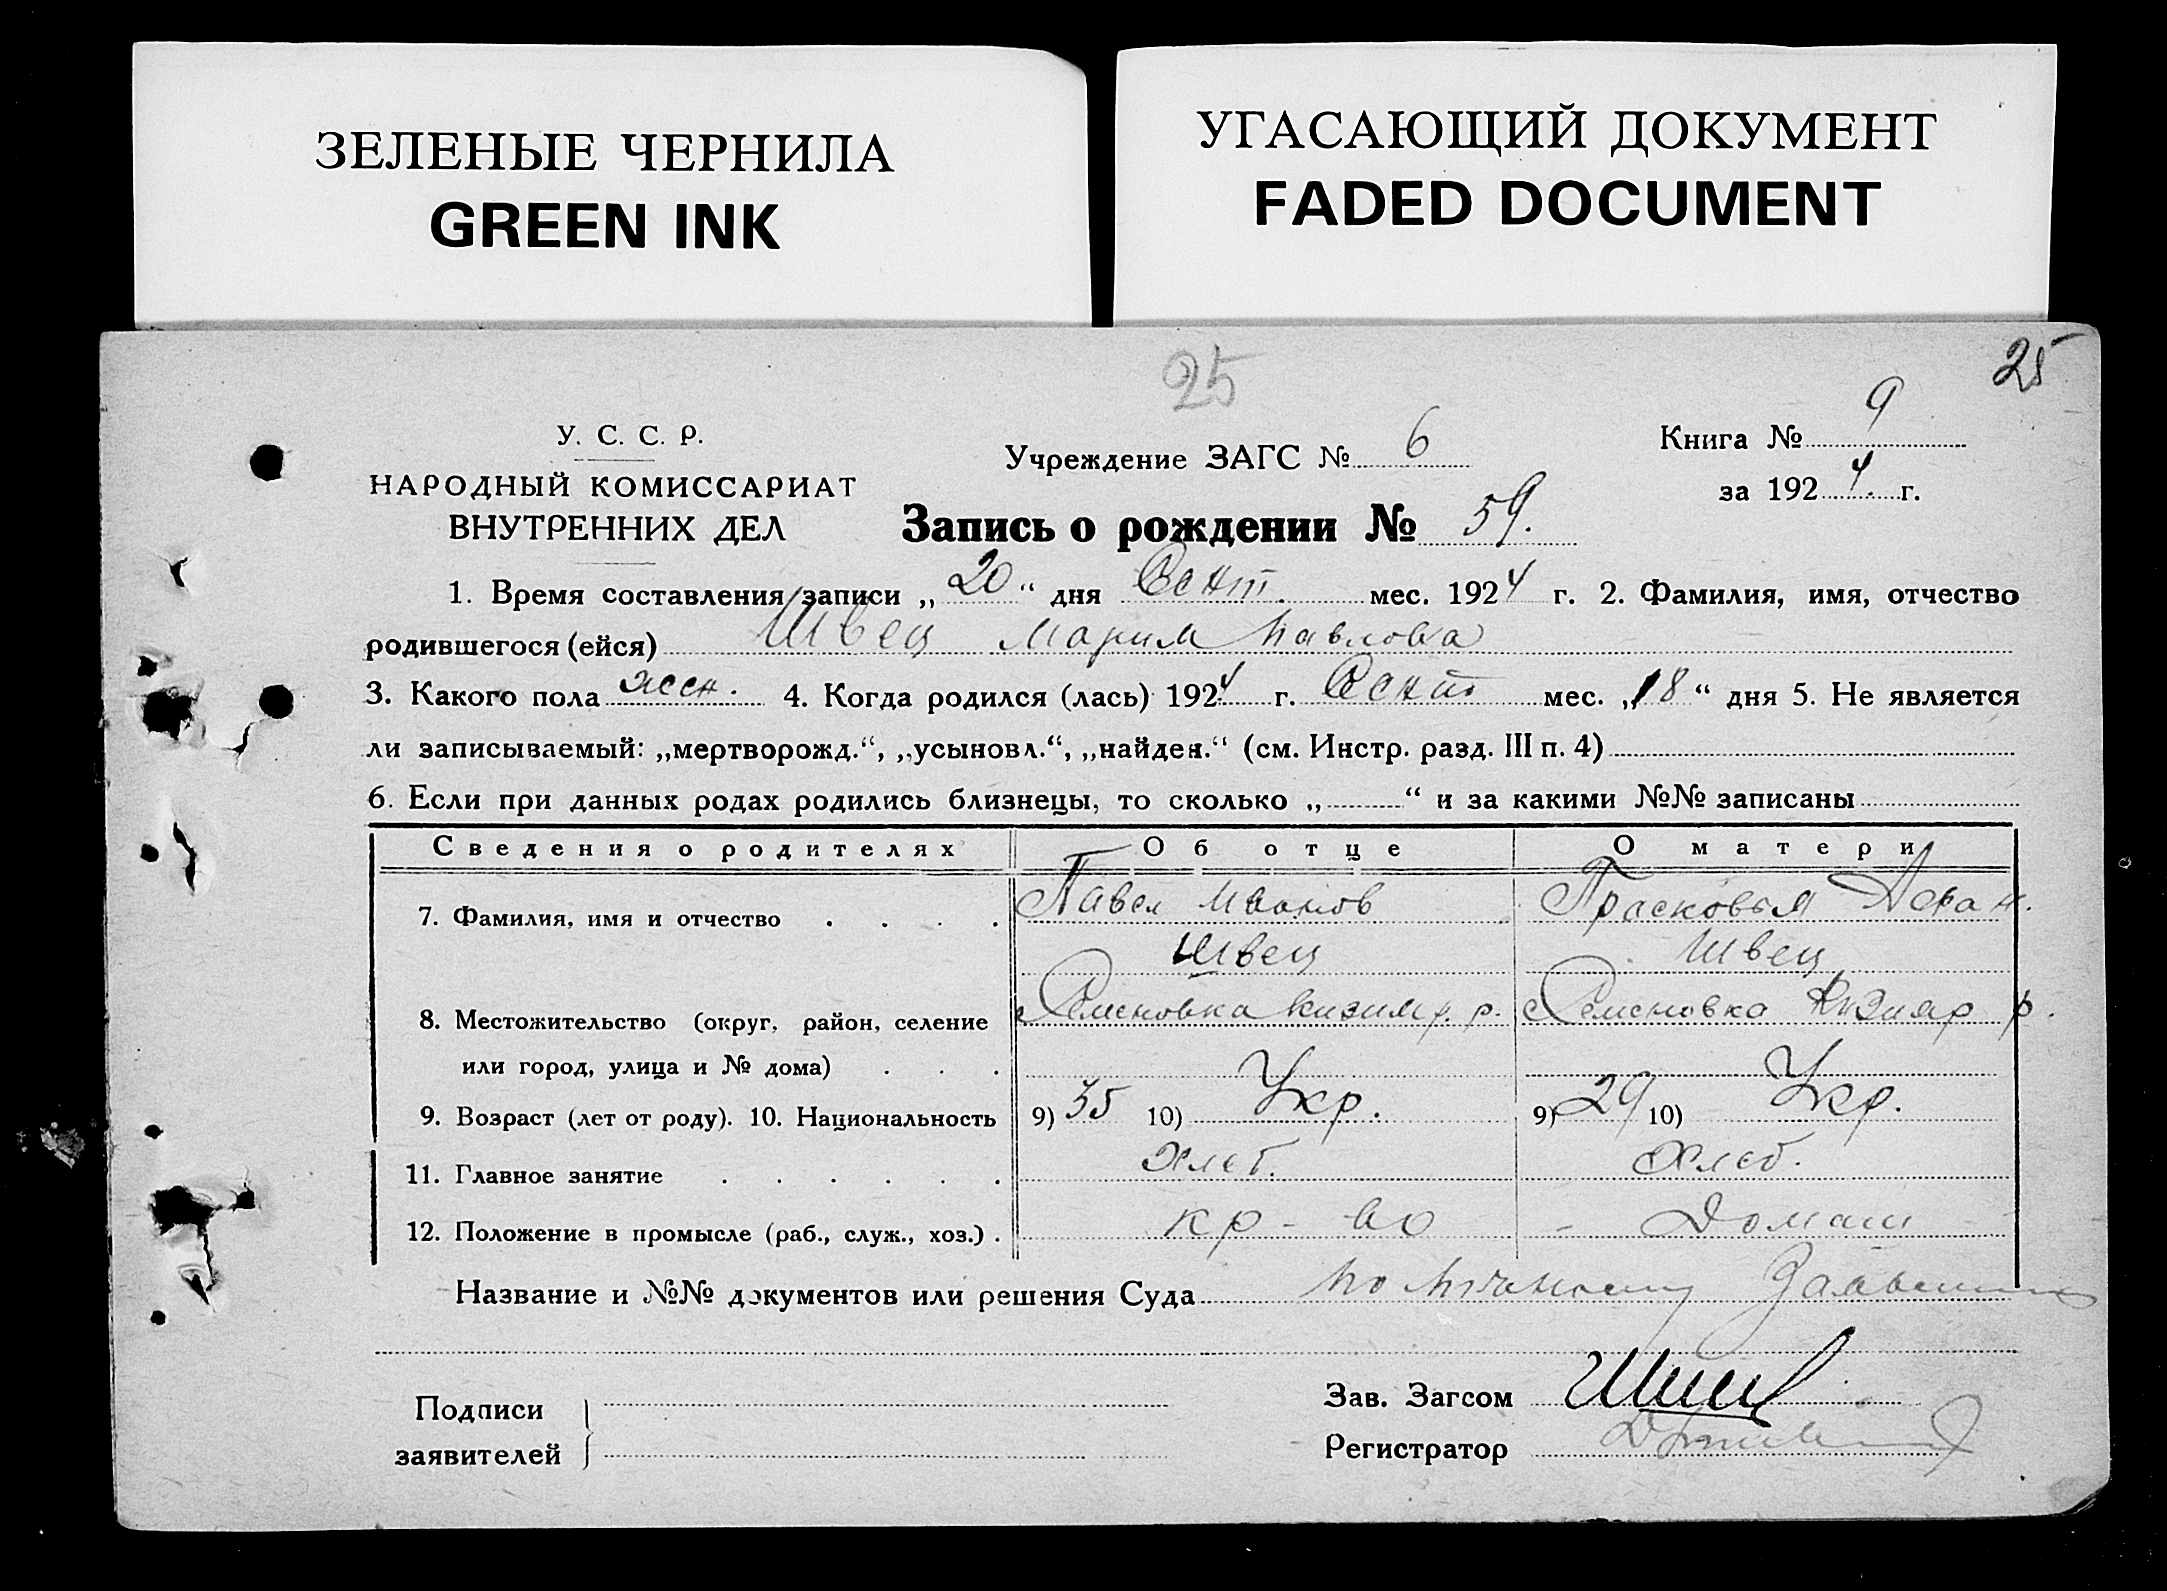 ЗЕЛЕНЫЕ ЧЕРНИЛА
GREEN INK
УГАСАЮЩИЙ ДОКУМЕНТ
FADED DOCUMENT
25
25
У. С. С. Р.
НАРОДНЫЙ КОМИССАРИАТ
ВНУТРЕННИХ ДЕЛ
Учреждение ЗАГС № 6
Книга № 9
за 1924 г.
Запись о рождении № 59.
1. Время составления записи „20“ дня Сент. мес. 1924 г. 2. Фамилия, имя, отчество
родившегося (ейся) Швец Мария Павлова
3. Какого пола жен. 4. Когда родился (лась) 1924 г. Сент мес. „18“ дня 5. Не является
ли записываемый: „мертворожд.“, „усыновл.“, „найден.“ (см. Инстр. разд. III п. 4)
6. Если при данных родах родились близнецы, то сколько „ “ и за какими №№ записаны
Сведения о родителях Об отце О матери
7. Фамилия, имя и отчество Павел Иванов Прасковья Афан.
Швец Швец
8. Местожительство (округ, район, селение с Семеновка Кизияр. р. с Семеновка Кизияр р.
или город, улица и № дома)
9. Возраст (лет от роду). 10. Национальность 9) 35 10) Укр. 9) 29 10) Укр.
11. Главное занятие Хлеб. Хлеб.
12. Положение в промысле (раб., служ., хоз.) кр-во - Домаш
Название и №№ документов или решения Суда по личному
Подписи
заявителей
Зав. Загсом
Регистратор